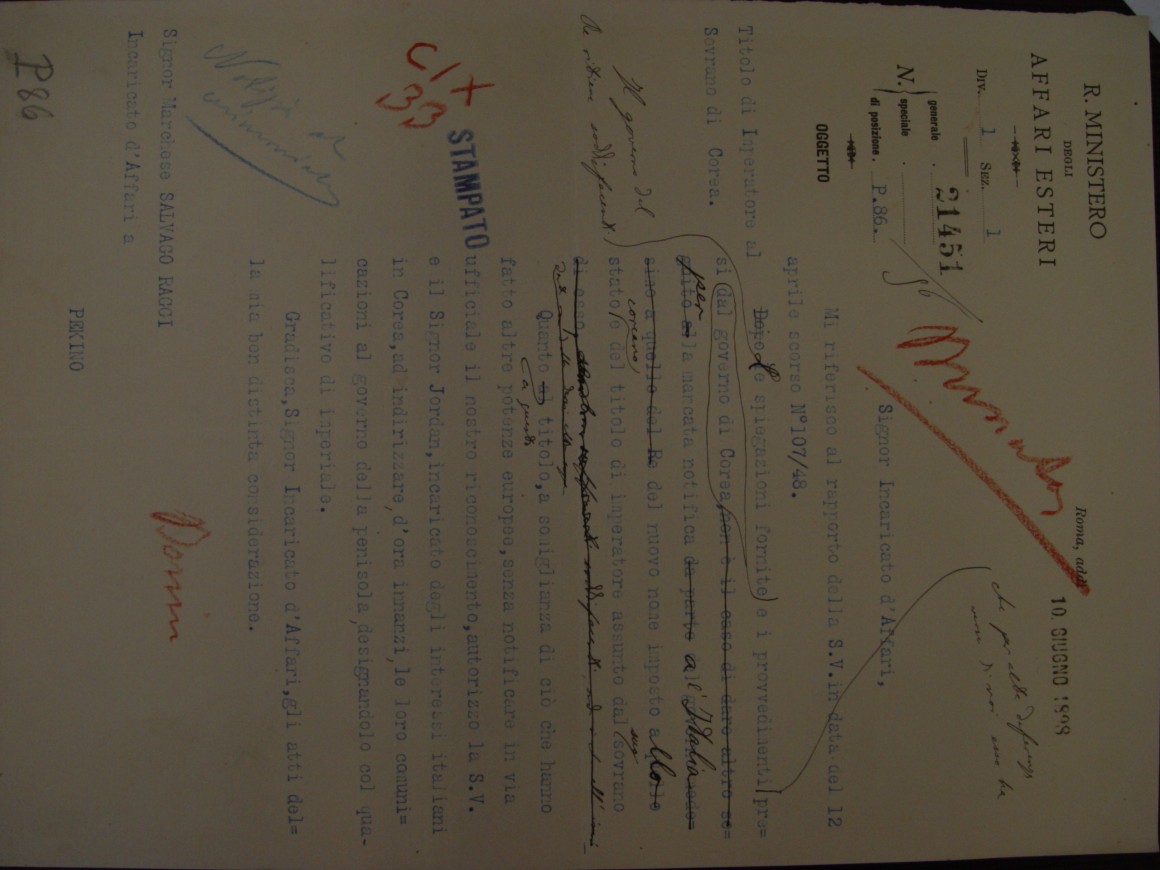 R. MINISTERO
DEGLI
AFFARI ESTERI
Div. 1 Sez. 1
N. generale . 21451
speciale .
di posizione . P.86.
OGGETTO
Titolo di Imperatore al
Sovrano di Corea.
Roma, addì 10. GIUGNO 1898
che per altre
Signor Incaricato d'Affari,
Mi riferisco al rapporto della S.V.in data del 12
aprile scorso N°107/48.
Dopo le spiegazioni fornite e i provvedimenti pre=
si dal governo di Corea, non è il caso di dare altro se=
guito alla per mancata notifica da parte all'Italia
sino a quello del Re del nuovo nome imposto allo
stato coreano, e del titolo di imperatore assunto dal suo sovrano
di esso,
Il governo del
Re ritiene soddisfacenti
Quanto al a questo titolo,a somiglianza di ciò che hanno
fatto altre potenze europee,senza notificare in via
ufficiale il nostro riconoscimento,autorizzo la S.V.
e il Signor Jordan,incaricato degli interessi italiani
in Corea,ad indirizzare,d'ora innanzi,le loro comuni=
cazioni al governo della penisola,designandolo col qua-
lificativo di imperiale.
Gradisca,Signor Incaricato d'Affari,gli atti del=
la mia ben distinta considerazione.
STAMPATO
C/+
33
Signor Marchese SALVAGO RAGGI
Incaricato d'Affari a
PEKINO
P86